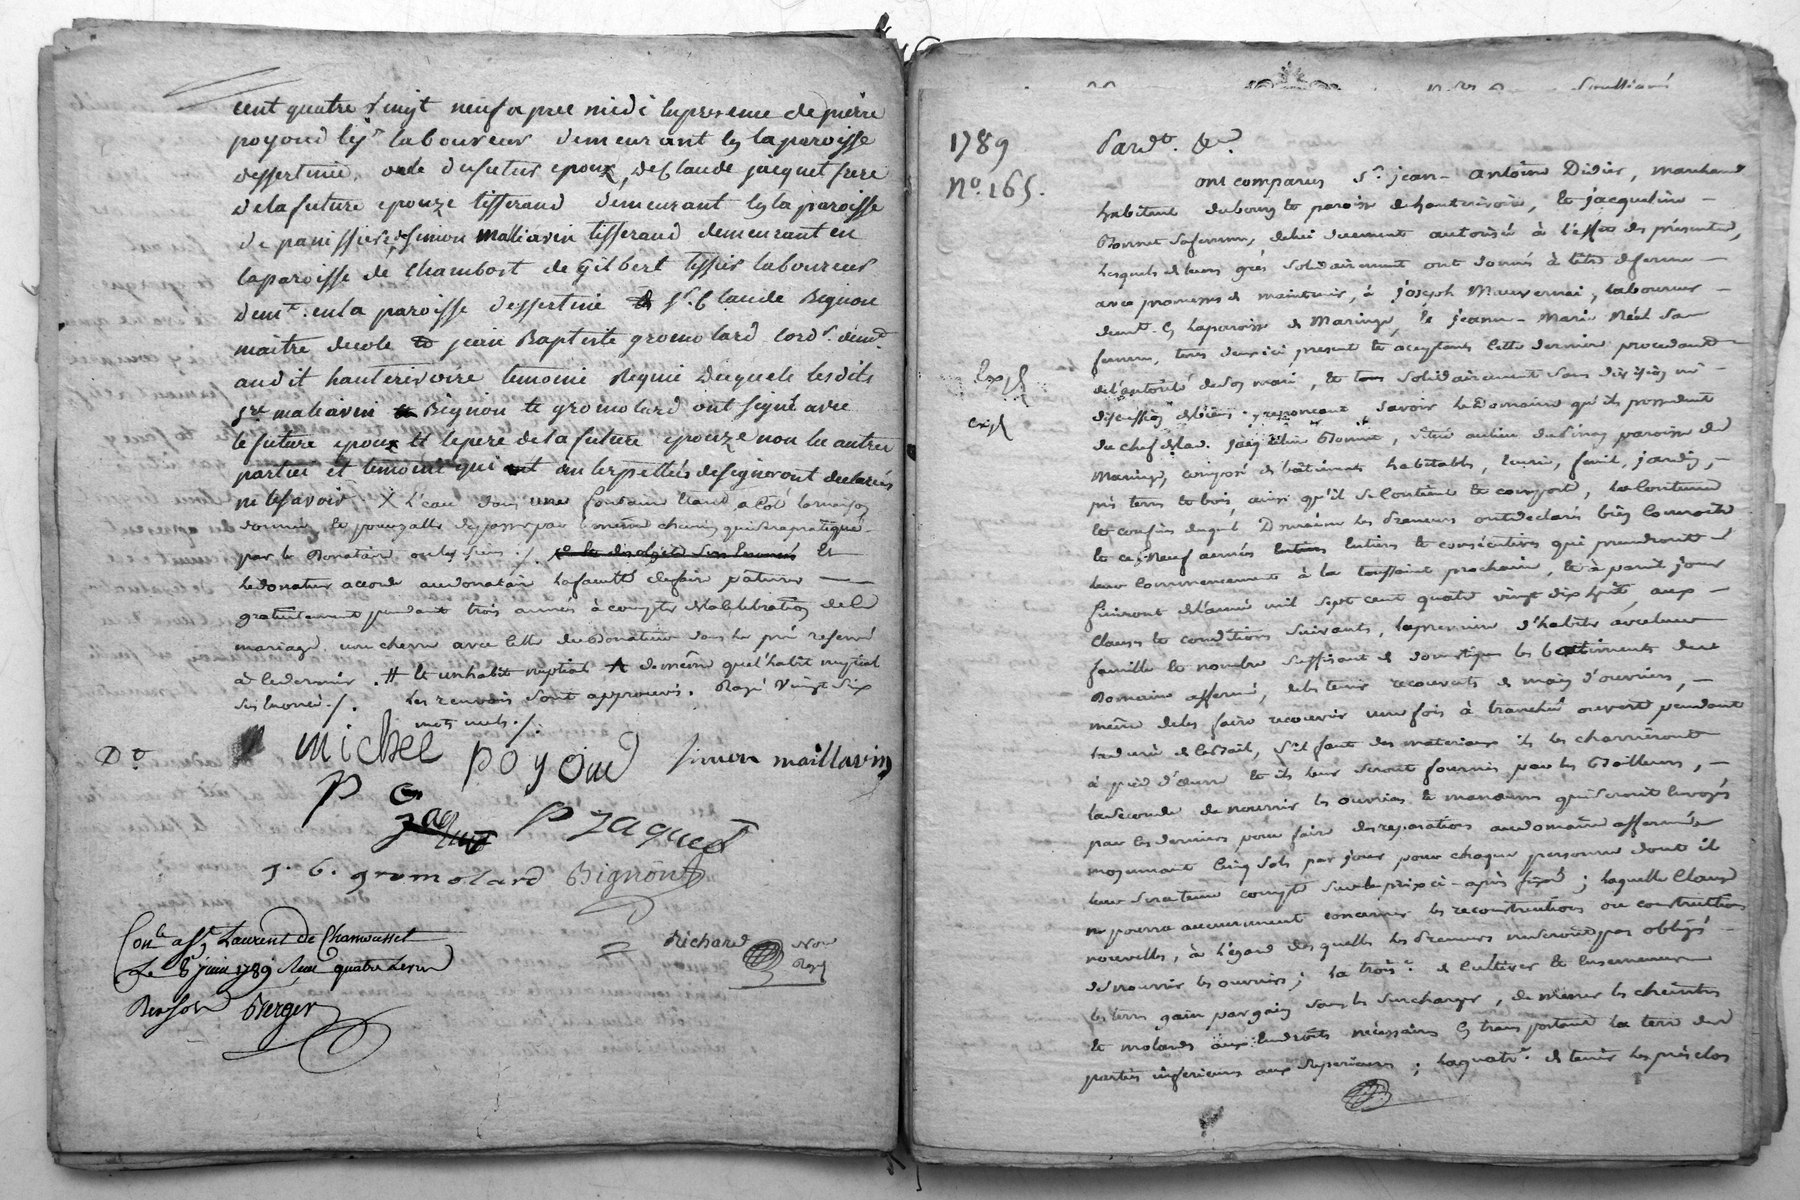 cent quatre vingt neuf apres midi en presence de pierre
poyoud laboureur demeurant en la paroisse
dessertine oncle du futur epoux, de Claude jacquet frere
de la future epouze tisserand demeurant en la paroisse
de panissiere, simon malliavin tisserand demeurant en
la paroisse de Chambost de Gilbert tissier laboureur
demt. en la paroisse dessertine Sr. Claude Bignon
maitre decole jean Baptiste gromolard cord. demt.
audit hauterivoire temoins Requis Lesquels lesdits
malliavin Bignon et gromolard ont signé avec
le future epoux et le pere de la future epouze non les autres
parties et temoins qui ont interpellés de signer ont declarés
ne le savoir X L'eau dans une fontaine étant a coté la maison
donnée, et pour y aller passer par le même chemin qui sera pratiqué
par le Donateur ou les siens ./. Et
le donateur accorde au donataire la faculté de faire paturer —
gratuitement pendant trois années à compter de la celebration de la
mariage une chevre avec celle du donateur dans le pré reservé
à ce dernier . # et un habit nuptial de même que l'habit nuptial
Les renvois sont approuvés. Rayé Vingt Six
mots nuls ./.
Dt.
michel poyoud simon maillavin
P jaquet P zaquet
J. B. gromolard Bignon
Richard Nore
Royl
Conlé. assé. Laurent de Chamousset
Le 8 juin 1789 Reçu quatre Livres
Berger
1789
No. 165.
Pardt. &a.
ont comparus Sr. jean-Antoine Didier, marchand
habitant du bourg et paroisse de hauterivoire, et jacqueline —
Bonnet sa femme, de lui duement autorisée à l'effet des présentes,
lesquels de leurs grés solidairement ont donnés à titre de ferme —
avec promesse de maintenir, à joseph Mauvernai, laboureur —
demt. en la paroisse de Maringe, et jeanne-Marie Néel sa
femme, tous deux ici present et acceptants cette derniere procedant
de l'autorité de son mari, et tous solidairement sans division ni —
discussion de biens y renonceant, savoir le Domaine qu'ils possedent
du chef de lad. jacqueline Bonnet, situé au lieu du paroisse de
Maringe, composé de bâtiments habitables, Ecurie, fenil, jardin, —
prés terres et bois, ainsi qu'il se Contient et comporte, la Contenue
et confins duquel Domaine les preneurs ont declarés bien Connoitre,
et ce, Neuf années Entieres et consécutives qui prendront
leur Commencement à la toussaint prochaine, et à pareil jour
finiront de l'année mil sept cent quatre vingt dix huit, aux —
Clauses et conditions suivantes, la premiere d'habiter avec leur
famille et nombre suffisant de domestiques les batiments du
Domaine affermé, de les tenir recouverts de main d'ouvriers, —
même de les faire recouvrir une fois à tranchée ouverte pendant
la durée de ce bail, s'il faut des materiaux ils les charrieront
à pied d'œuvre et ils leur seront fournis par les Bailleurs, —
la seconde de nourrir les ouvriers et manœuvres qui seront Envoyés
par les derniers pour faire des reparations au domaine affermé
moyennant Cinq sols par jour pour chaque personne dont il
leur sera tenu compte sur le prix ci-après fixé ; laquelle Clause
ne pourra aucunement concerner les reconstructions ou constructions
nouvelles, à l'égard desquelles les Preneurs ne seront pas obligés
de nourrir les ouvriers ; la trois.e de Cultiver et Ensemencer
les terres gain par gain sans les surcharger, de mener les cheintres
et molards aux Endroits nécessaires En transportant la terre des
parties inferieures aux superieures ; la quatr.e de tenir les prés clos